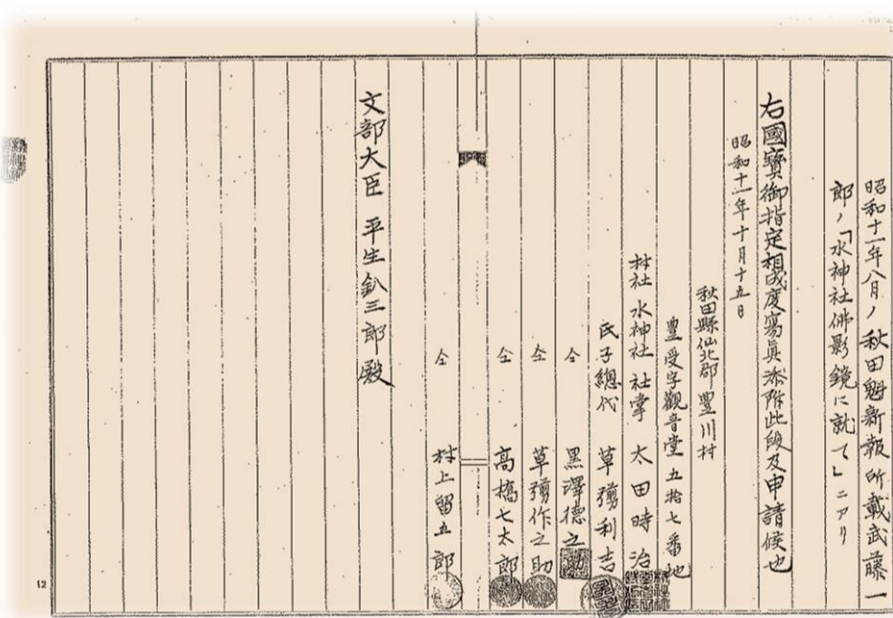 昭和十一年八月ノ秋田魁新報所載武藤一
郎ノ「水神社佛影鏡に就て」ニアリ
右國寳御指定相成度寫眞添附此段及申請候也
昭和十一年十月十五日
秋田縣仙北郡豐川村
豐受字觀音堂五拾七番地
村社 水神社 社掌 太田時治
氏子總代 草彅利吉
仝 黒澤德之助
仝 草彅作之助
仝 高橋七太郎
仝 村上留五郎
文部大臣 平生釟三郎殿
12